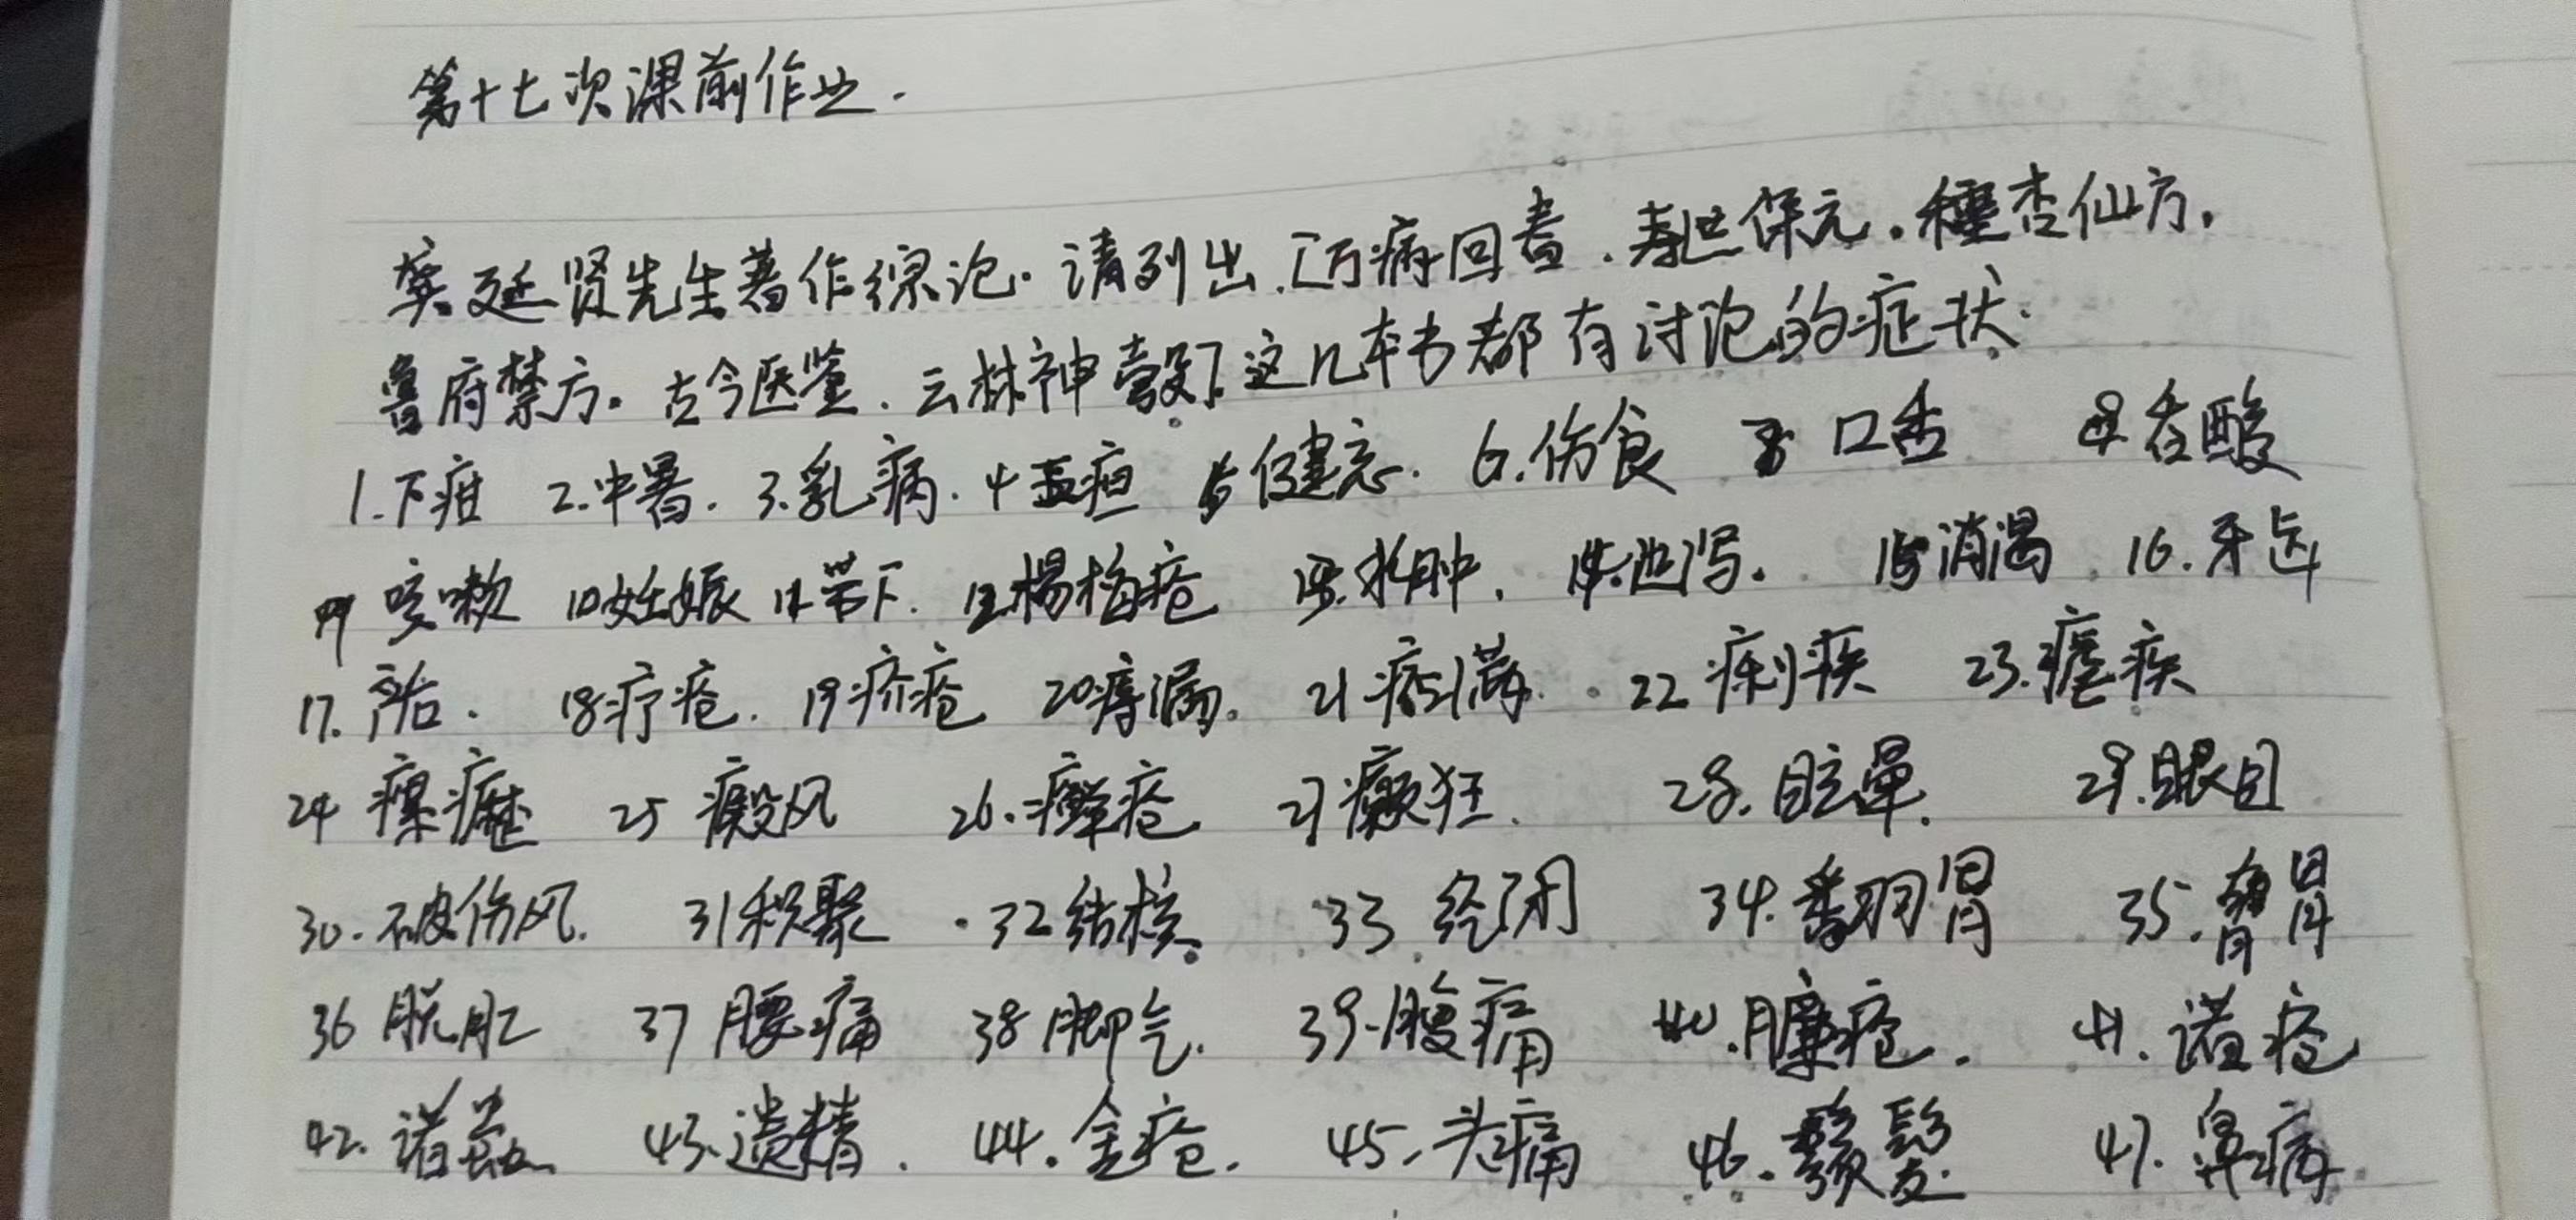 第十七次课前作业.
龚廷贤先生著作综论. 请列出.[万病回春.寿世保元.種杏仙方.
鲁府禁方. 古今医鉴. 云林神彀]这几本书都有讨论的症状.
1.下疳 2.中暑. 3.乳病. 4 五疸 5 健忘. 6.伤食 7 口舌 8 吞酸
9 咳嗽 10 妊娠 11.带下. 12.楊梅疮 13.水肿. 14.泄泻. 15 消渴 16.牙齿
17.产后. 18 疔疮. 19 疥疮 20 痔漏. 21 痞满. 22 痢疾 23.瘧疾
24 瘰癧 25 癜风 26.癣疮 27 癫狂. 28.眩晕. 29.眼目
30.破伤风. 31 积聚 32 结核. 33 经闭 34.翻胃 35.
36 脱肛 37 腰痛 38 脚气. 39.腹痛 40.臁疮. 41.诸疮
42.诸虫 43.遗精. 44.金疮. 45.头痛 46.鬚髮 47.鼻病